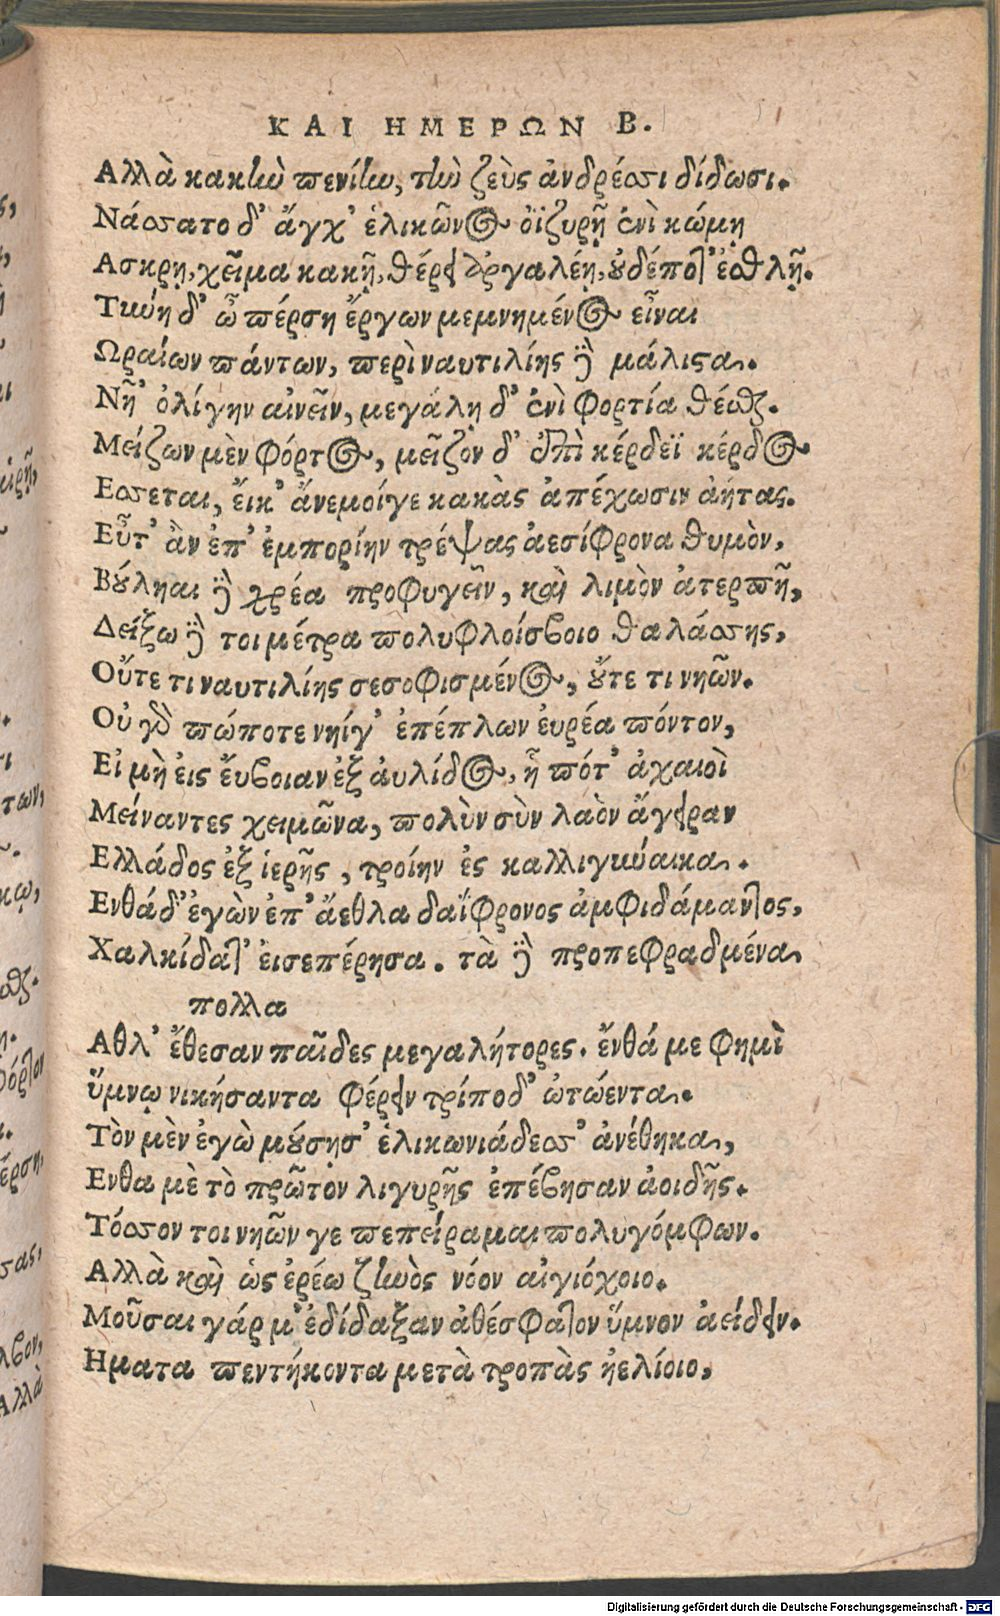 ΚΑΙ ΗΜΕΡΩΝ Β.
Αλλὰ κακὴν πενίην, τὴν ζεὺς ἀνδρέσσι δίδωσι.
Νάσσατο δ' ἄγχ' ἑλικῶνος ὀϊζυρῇ ἐνὶ κώμῃ
Ασκρῃ, χεῖμα κακῇ, θέρει ἀργαλέῃ, οὐδέποτ' ἐσθλῇ.
Τύνη δ' ὦ πέρση ἔργων μεμνημένος εἶναι
Ωραίων πάντων, περὶ ναυτιλίης δὲ μάλιστα.
Νῆ' ὀλίγην αἰνεῖν, μεγάλῃ δ' ἐνὶ φορτία θέσθαι.
Μείζων μὲν φόρτος, μεῖζον δ' ἐπὶ κέρδεϊ κέρδος
Εσσεται, ἔικ' ἄνεμοίγε κακὰς ἀπέχωσιν ἀήτας.
Εὖτ' ἂν ἐπ' ἐμπορίην τρέψας ἀεσίφρονα θυμὸν,
Βούληαι δὲ χρέα προφυγεῖν, καὶ λιμὸν ἀτερπῆ,
Δείξω δὲ τοι μέτρα πολυφλοίσβοιο θαλάσσης,
Οὔτε τι ναυτιλίης σεσοφισμένος, οὔτε τι νηῶν.
Οὐ γὰρ πώποτε νηίγ' ἐπέπλων ἐυρέα πόντον,
Εἰ μὴ ἐις ἔυβοιαν ἐξ ἀυλίδος, ᾗ πότ' ἀχαιοὶ
Μείναντες χειμῶνα, πολὺν σὺν λαὸν ἄγειραν
Ελλάδος ἐξ ἱερῆς, τροίην ἐς καλλιγύναικα.
Ενθάδ' ἐγὼν ἐπ' ἄεθλα δαΐφρονος ἀμφιδάμαντος,
Χαλκίδατ' ἐισεπέρησα. τὰ δὲ προπεφραδμένα
πολλα
Αθλ' ἔθεσαν παῖδες μεγαλήτορες. ἔνθά με φημὶ
ὕμνῳ νικήσαντα φέρειν τρίποδ' ὠτώεντα.
Τὸν μὲν ἐγὼ μούσῃσ' ἑλικωνιάδεσσ' ἀνέθηκα,
Ενθα μὲ τὸ πρῶτον λιγυρῆς ἐπέβησαν ἀοιδῆς.
Τόσσον τοι νηῶν γε πεπείραμαι πολυγόμφων.
Αλλὰ καὶ ὡς ἐρέω ζηνὸς νόον αἰγιόχοιο.
Μοῦσαι γάρ μ' ἐδίδαξαν ἀθέσφατον ὕμνον ἀείδειν.
Ηματα πεντήκοντα μετὰ τροπὰς ἠελίοιο,
Digitalisierung gefördert durch die Deutsche Forschungsgemeinschaft - DFG